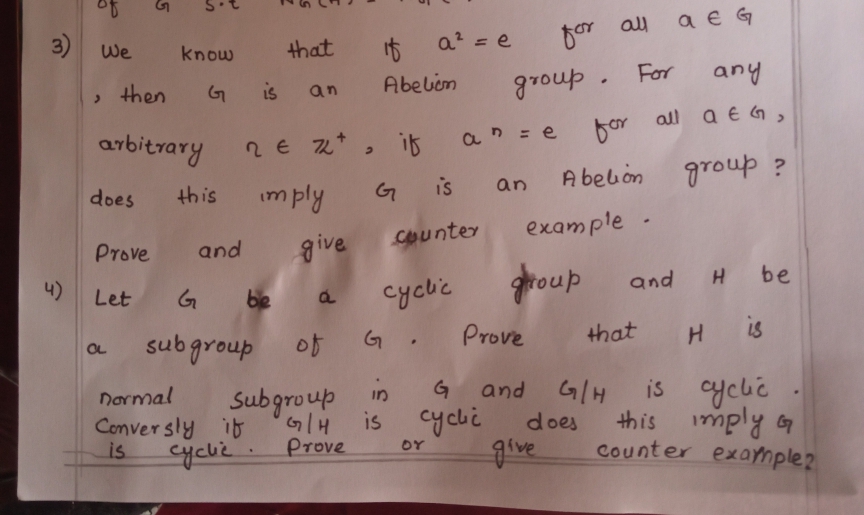 of G s.t
3) We know that if a² = e for all a ∈ G
, then G is an Abelion group. For any
arbitrary n ∈ Z⁺, if aⁿ = e for all a ∈ G,
does this imply G is an Abelion group?
Prove and give counter example.
4) Let G be a cyclic group and H be
a subgroup of G. Prove that H is
normal subgroup in G and G/H is cyclic.
Conversly if G/H is cyclic does this imply G
is cyclic. Prove or give counter example?